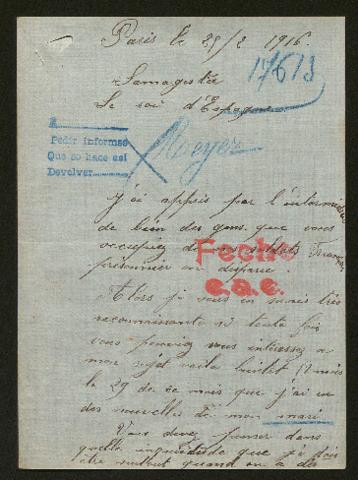 Paris le 25/2 1916.
17613
Sa magestée
Le roi d'Espagne
A
Pedir informes
Que se hace así
Devolver
Meyer
J'ai appris par l'intermédiaire
de bien des gens que vous
occupiez de nos soldats Français
prisonnier ou disparu
Fecho
c.a.e.
Alors je vous en serais très
reconnaissante si toute fois
vous pouviez vous intéressez a
mon sujet voila bientot 12 mois
le 29 de ce mois que j'ai eu
des nouvelles de mon mari
Vous devez penser dans
quelle inquiétude que je dois
être surtout quand on a des